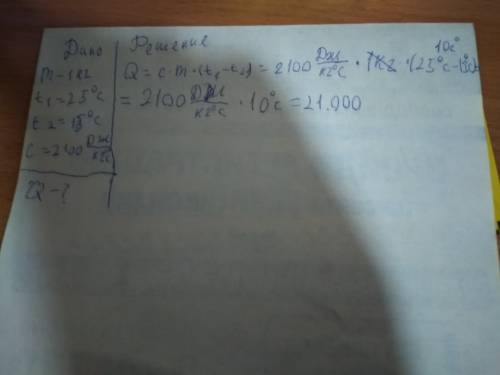 Дано
m - 1 кг
t₁ = 25°C
t₂ = 15°C
c = 2100 Дж/кг°C
Q - ?
Решение
10c°
Q = c · m · (t₁ - t₂) = 2100 Дж/кг°C · 1кг · (25°C -
= 2100 Дж/кг°C · 10°C = 21.000